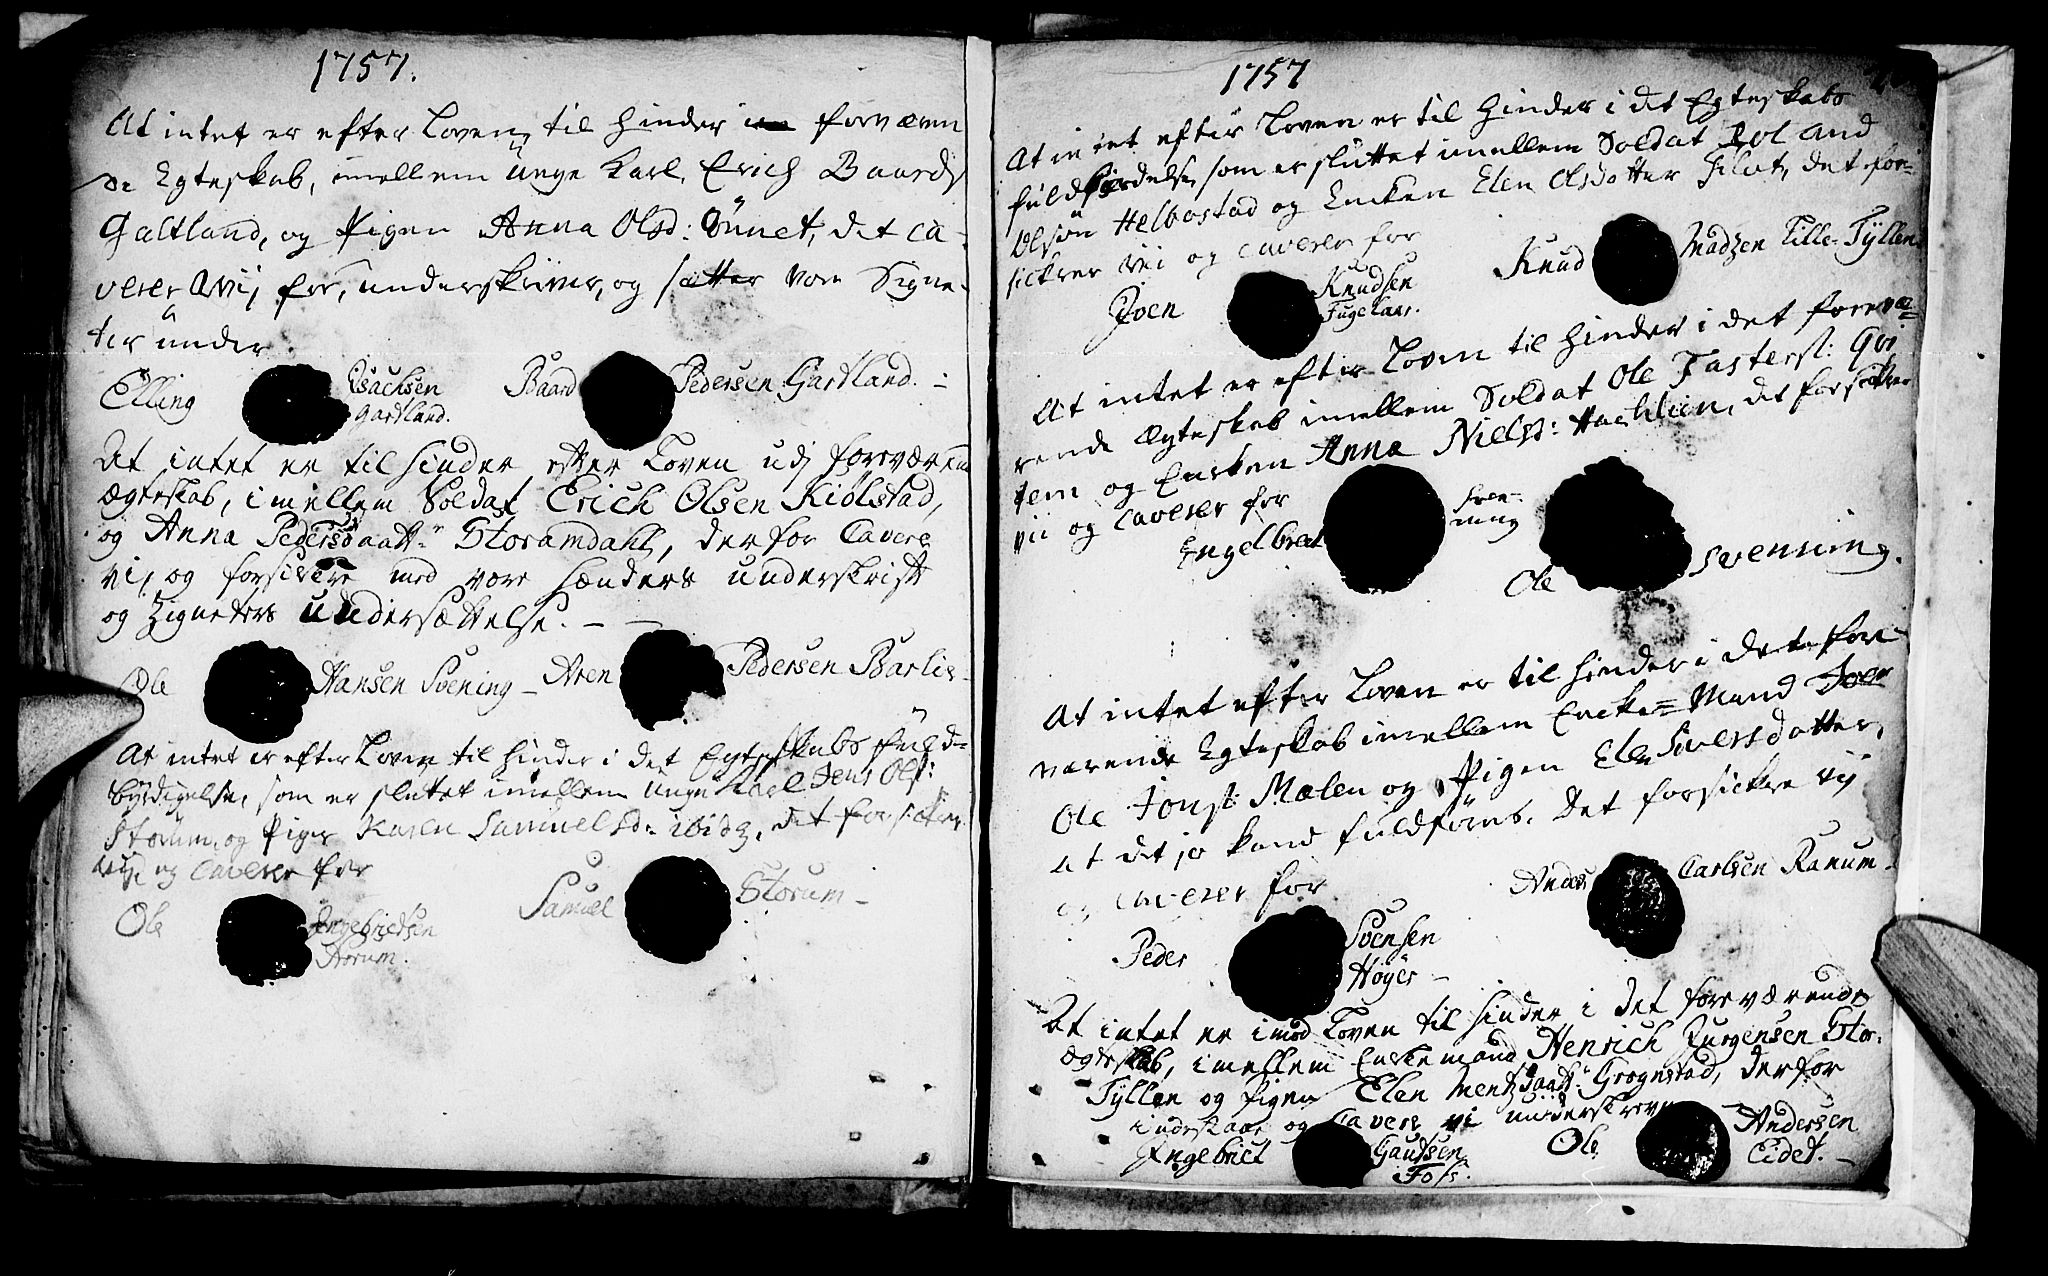 1757.
At intet er efter Loven, til hinder i forværen
de Egteskab, imellem unge Karl, Erich Baards
Galtland, og Pigen Anna Olsd: Önnet, det ca-
verer Wij for, underskriver, og sætter vore Signe-
ter under.
Elling Isachsen Gartland. Baard Pedersen Gartland. -
At intet er til hinder efter Loven udj forværen
ægteskab, imellem Soldat Erich Olsen Kiölstad,
og Anna Pedersdaatt.r Storamdahl, derfor Cavere
vi, og forsikere med vore hænders underskrift
og Zigneters undersættelse. - -
Ole Hansen Svening - Aren Pedersen Barlie -
At intet er efter Loven til hinder i det Egteskabs fuld-
byrdigelse, som er sluttet imellem unge Karl Jens Ols:
Storum, og Pigen Karen Samuelsd: ibid, det forsikrer
vij og Caverer for
Ole Ingebrictsen Storum. Samuel Storum -
1757
At intet efter Loven er til hinder i det Egteskabs
fuldfördelse, som er sluttet imellem Soldat Rol and
Olsön Helbostad og Encken Elen Olsdatter Filot, det for-
sickrer vii og caverer for
Joen Knudsen Fugelaas. Knud Madzen Lille-Tyllen
At intet er efter Loven til hinder i det forevæ-
rende Ægteskab imellem Soldat Ole Fasters: Gri
tem og Encken Anna Nielsd: Hachlien, det forsickrer
vii og Caverer for
Engelbret Svenning Ole Svenning.
At intet efter Loven er til hinder i det fore-
værende Egteskab imellem Encke-Mand Joen
Ole Jons: Mælen og Pigen Elen Siversdatter,
at det jo kand fuldföres. Det forsickre vij
og caverer for
Peder Svensen Höyer - Anders Carlsen Ranum -
At intet er imod Loven til hinder i det foreværende
ægteskab, imellem Enckemand Henrich Jurgensen Stor-
Tyllen og Pigen Elen Mentzdaatt.r Grognstad, derfor
indestaar og Cavere vi underskrevne
Ingebrict Gautsen Foss. Ole Andersen Eidet. -